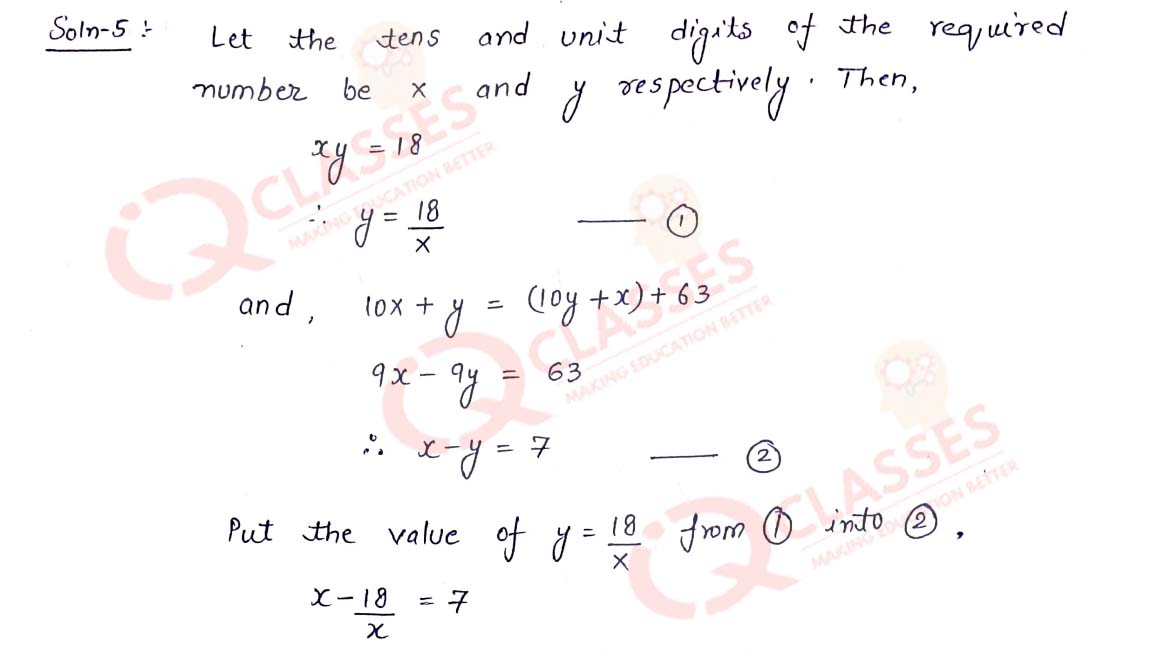 Soln-5 :- Let the tens and unit digits of the required
number be x and y respectively. Then,
xy = 18
∴ y = 18/x —— ①
and, 10x + y = (10y + x) + 63
9x - 9y = 63
∴ x - y = 7 —— ②
Put the value of y = 18/x from ① into ②,
x - 18/x = 7
IQ CLASSES
MAKING EDUCATION BETTER
IQ CLASSES
MAKING EDUCATION BETTER
IQ CLASSES
MAKING EDUCATION BETTER